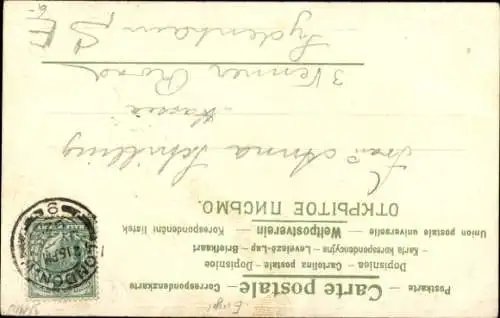 Postkarte — Carte postale — Correspondenzkarte
Dopisnica — Cartolina postale — Dopisnice
Karta korrespondencyjna — Levelező-Lap — Briefkaart
Union postale universelle Weltpostverein Korespondentni listek
ОТКРЫТОЕ ПИСЬМО.
Anna Schilling
3 Venner Road
Sydenham S E
LONDON